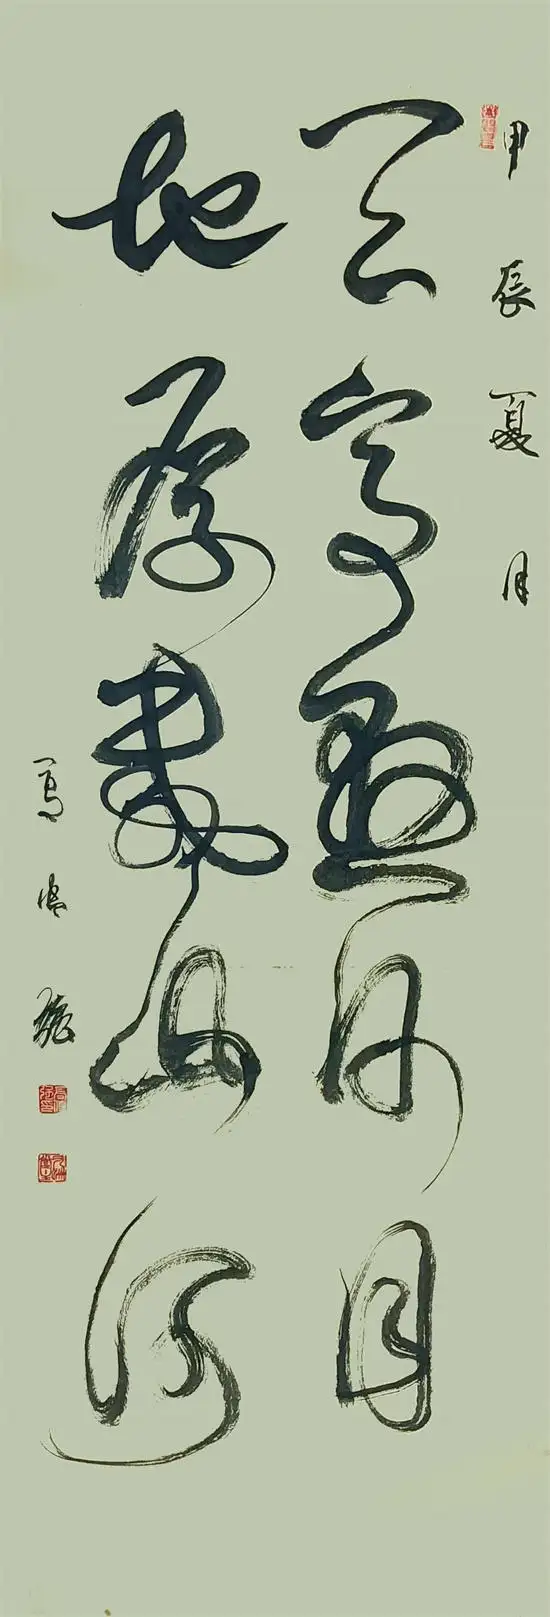 甲辰夏月
天高懸日月
地厚載山河